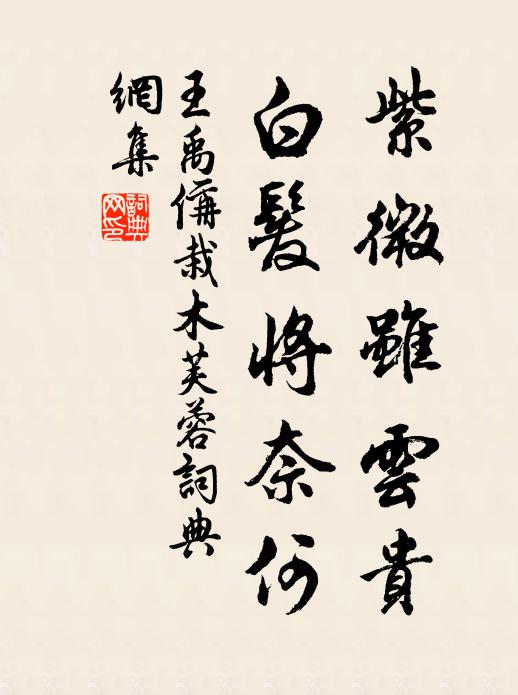 紫微雖雲貴
白髮將奈何
王禹偁栽木芙蓉詞典
網集
詞典網印